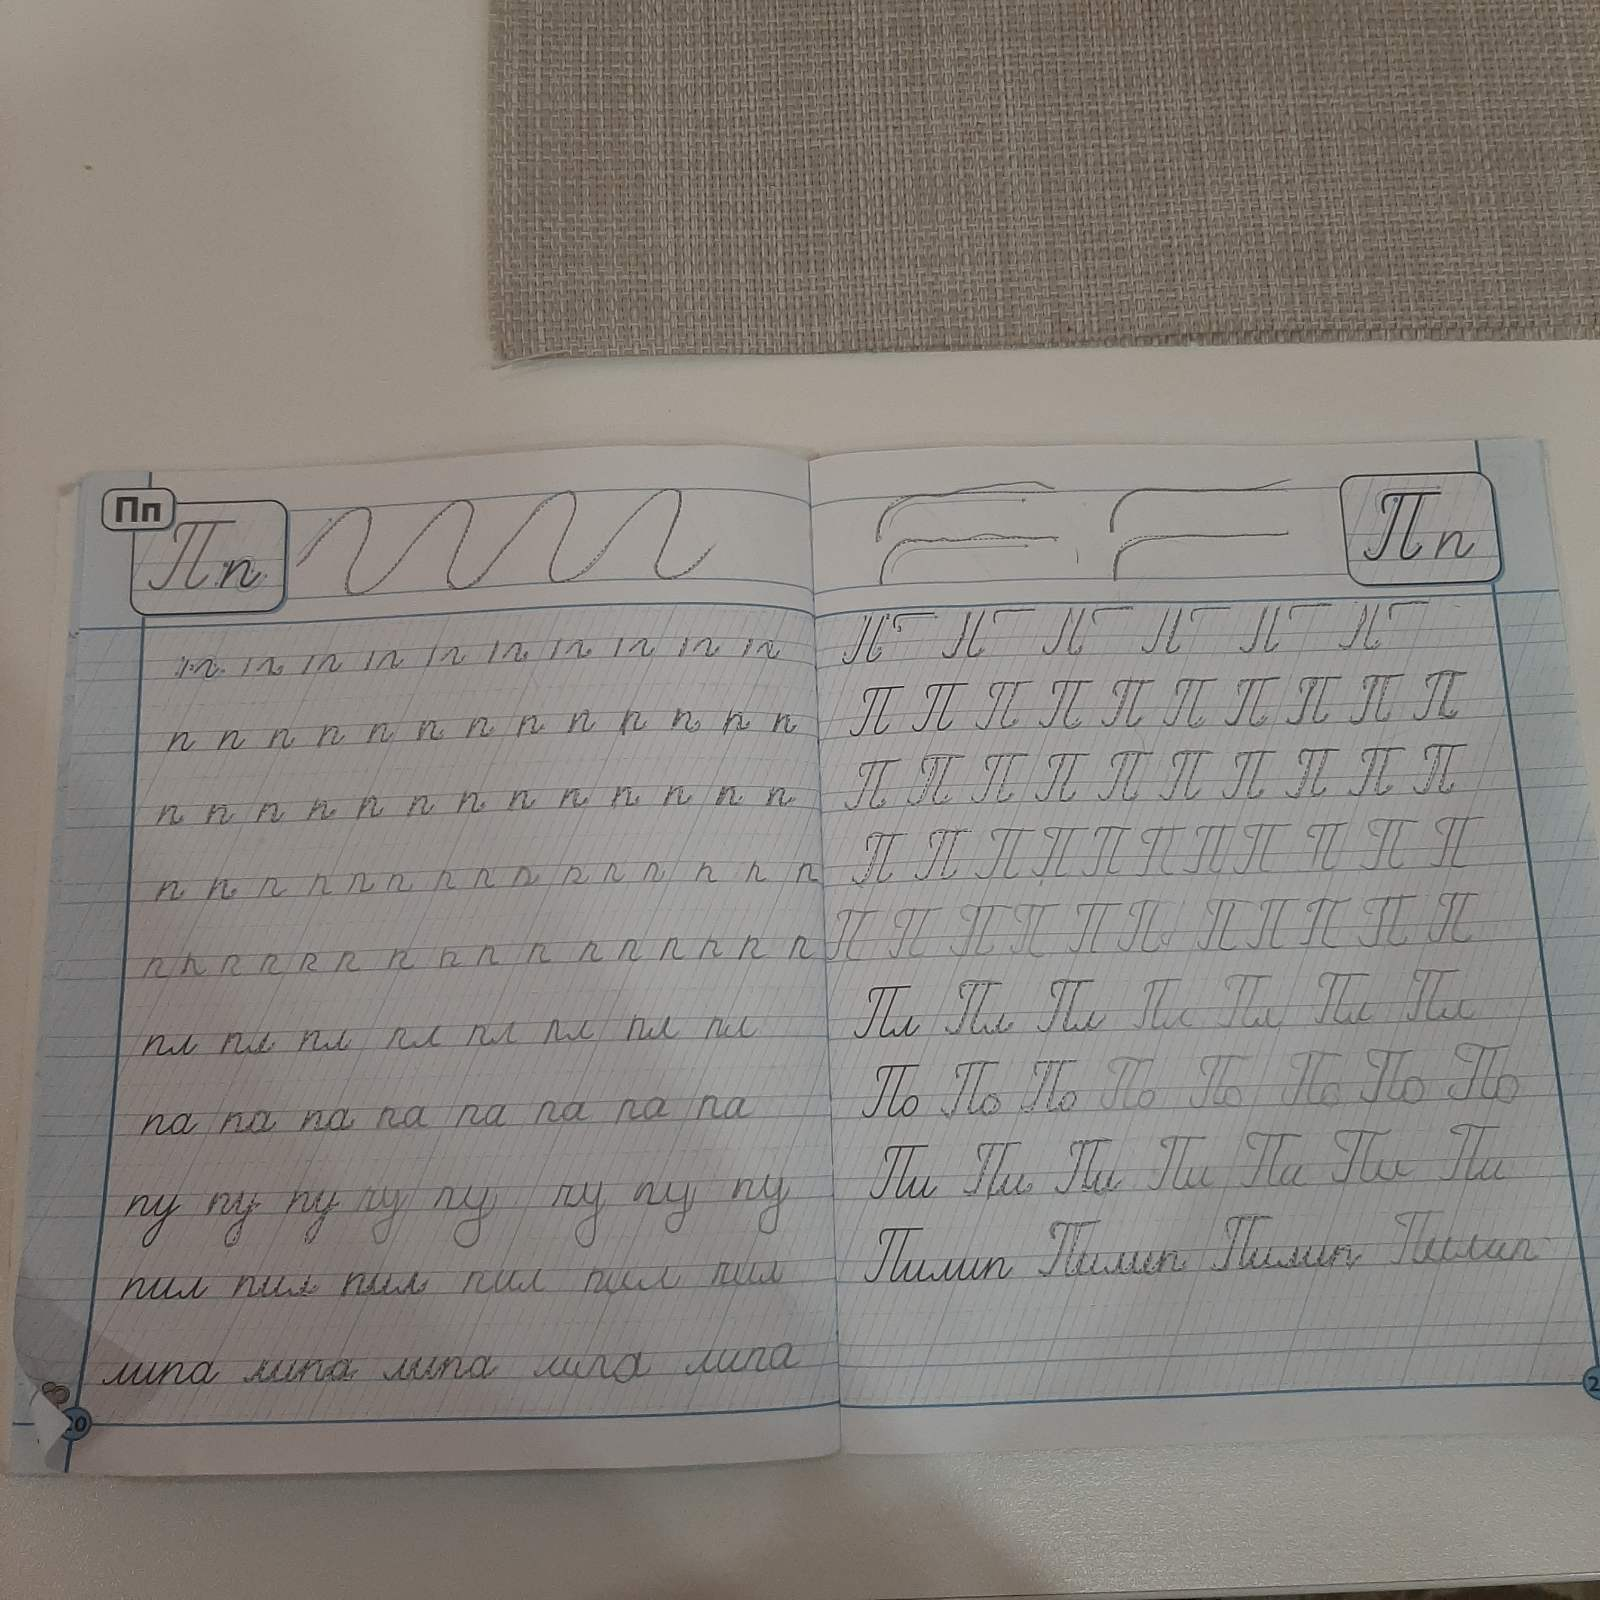 Пп
П п
п п п п п п п п п п п п п
п п п п п п п п п п п п п
п п п п п п п п п п п п п п п
п п п п п п п п п п п п п п п п
пл пл пл пл пл пл пл пл
па па па па па па па па
пу пу пу пу пу пу пу пу
пил пил пил пил пил пил
липа липа липа липа липа
20
П п
П П П П П П П П П П
П П П П П П П П П П
П П П П П П П П П П П
П П П П П П П П П П П
Пл Пл Пл Пл Пл Пл Пл
По По По По По По По По
Пи Пи Пи Пи Пи Пи Пи
Пилип Пилип Пилип Пилип